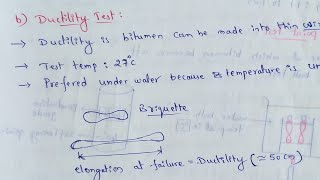 b) Ductility Test :
→ Ductility is bitumen can be made into thin wi
→ Test temp : 27°c
→ Prefered under water because temperature is un
Briquette
elongation at failure = Ductility (≈50cm)